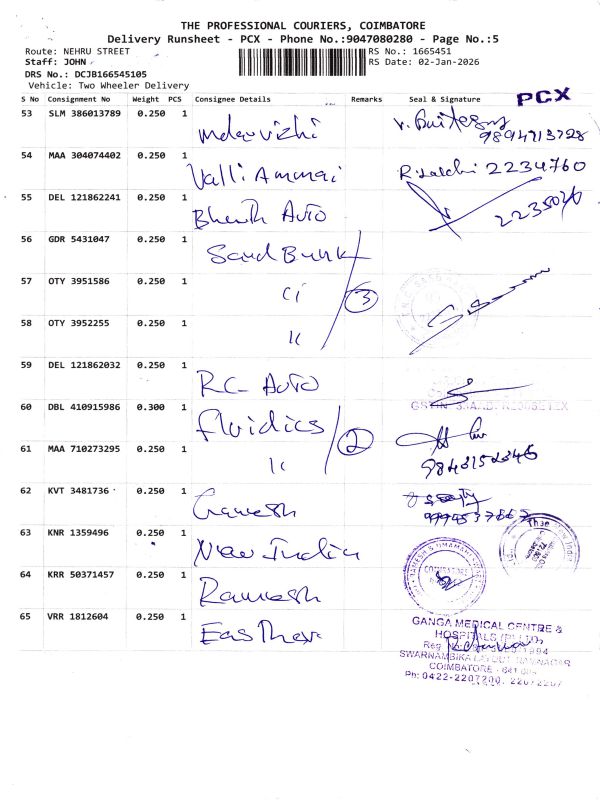 THE PROFESSIONAL COURIERS, COIMBATORE
Delivery Runsheet - PCX - Phone No.:9047080280 - Page No.:5
Route: NEHRU STREET RS No.: 1665451
Staff: JOHN RS Date: 02-Jan-2026
DRS No.: DCJB166545105
Vehicle: Two Wheeler Delivery
S No Consignment No Weight PCS Consignee Details Remarks Seal & Signature PCX
53 SLM 386013789 0.250 1 9894713728
54 MAA 304074402 0.250 1 Valli Ammai 2234760
55 DEL 121862241 0.250 1 Auto 2235020
56 GDR 5431047 0.250 1
57 OTY 3951586 0.250 1 3
58 OTY 3952255 0.250 1 11
59 DEL 121862032 0.250 1 RC Auto
60 DBL 410915986 0.300 1 fluidics 2
61 MAA 710273295 0.250 1 11
62 KVT 3481736 0.250 1 Ganesh
63 KNR 1359496 0.250 1 New India
64 KRR 50371457 0.250 1 Ramesh COIMBATORE
65 VRR 1812604 0.250 1
GANGA MEDICAL CENTRE &
HOSPITALS (P) LTD,
SWARNAMBIKA LAYOUT, RAMNAGAR
COIMBATORE - 641 009
Ph: 0422-2207200,